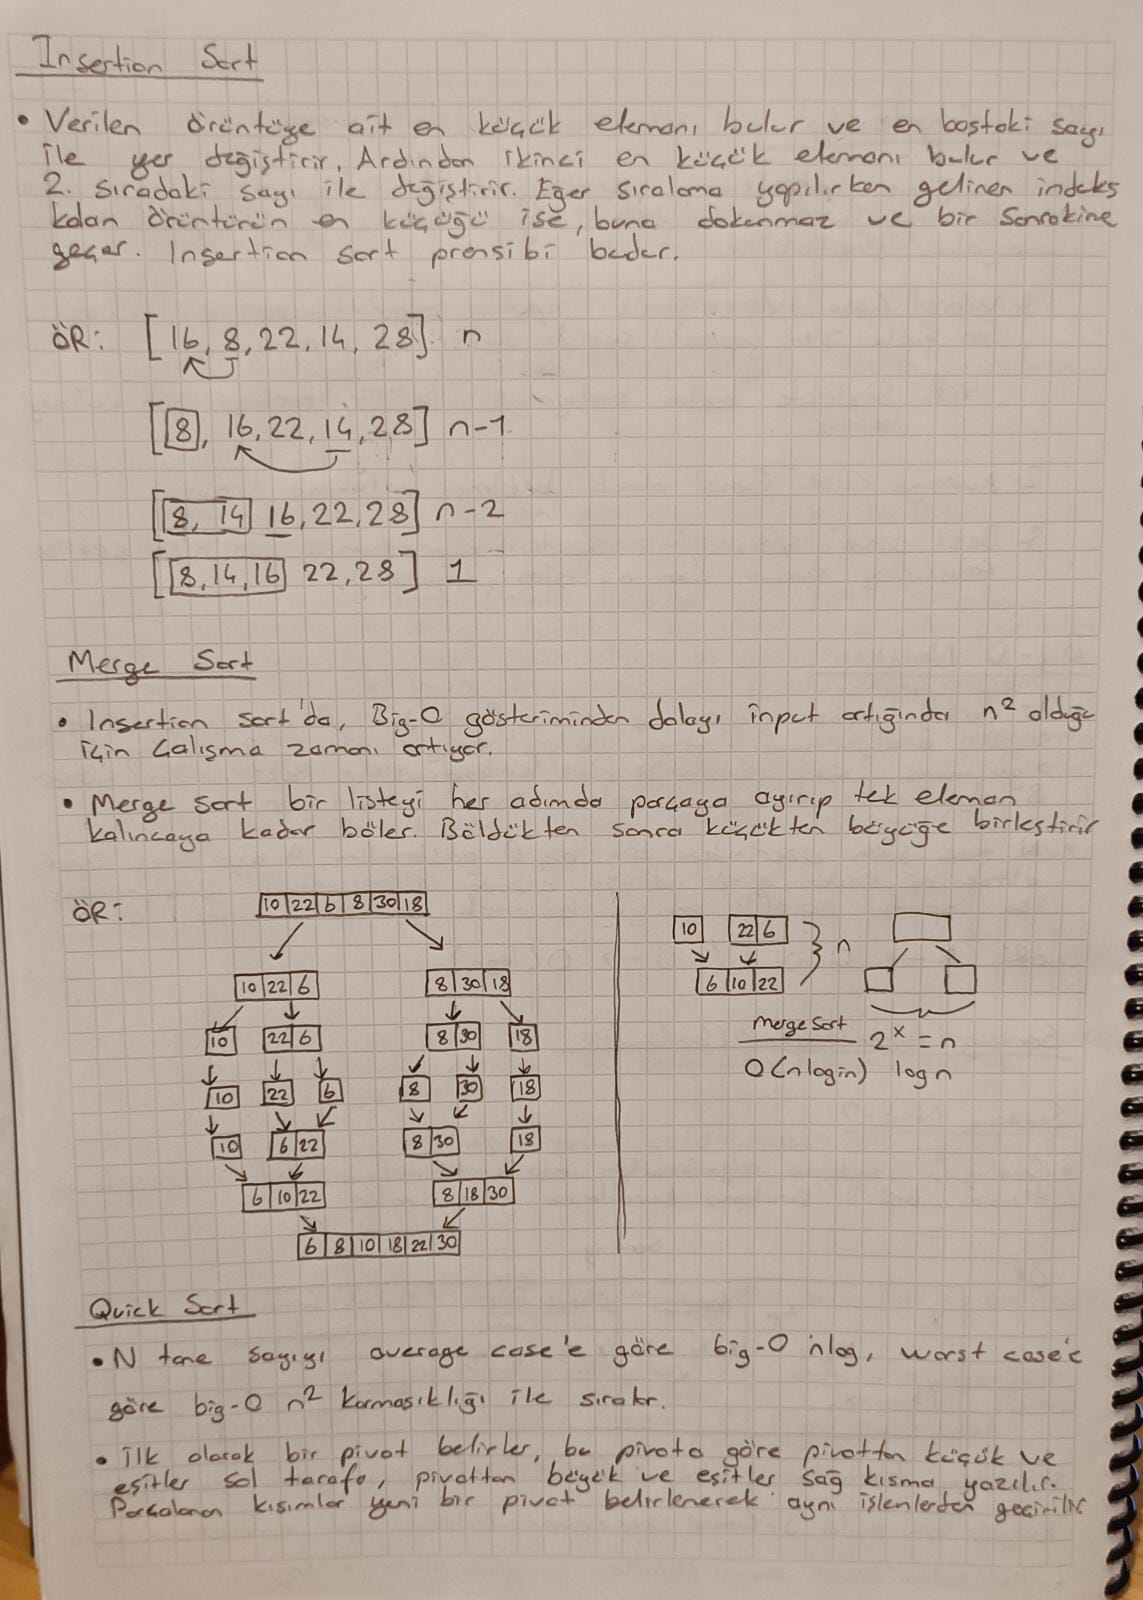 Insertion Sort
• Verilen örüntüye ait en küçük elemanı bulur ve en baştaki sayı
ile yer değiştirir. Ardından ikinci en küçük elemanı bulur ve
2. sıradaki sayı ile değiştirir. Eğer sıralama yapılırken gelinen indeks
kalan örüntünün en küçüğü ise, buna dokunmaz ve bir sonrakine
geçer. Insertion sort prensibi budur.
ÖR: [16, 8, 22, 14, 28] n
[8, 16, 22, 14, 28] n-1
[8, 14 16, 22, 28] n-2
[8, 14, 16 22, 28] 1
Merge Sort
• Insertion sort'da, Big-O gösteriminden dolayı input artığında n² olduğu
için çalışma zamanı artıyor.
• Merge sort bir listeyi her adımda parçaya ayırıp tek eleman
kalıncaya kadar böler. Böldükten sonra küçükten büyüğe birleştirir
ÖR: 10 22 6 8 30 18
10 22 6 8 30 18
10 22 6 8 30 18
10 22 6 8 30 18
10 6 22 8 30 18
6 10 22 8 18 30
6 8 10 18 22 30
10 22 6 n
6 10 22
merge sort 2ˣ = n
O(nlogn) logn
Quick Sort
• N tane sayıyı average case'e göre big-O nlog, worst case'e
göre big-O n² karmaşıklığı ile sıralar.
• ilk olarak bir pivot belirler, bu pivota göre pivottan küçük ve
eşitler sol tarafa, pivottan büyük ve eşitler sağ kısma yazılır.
Parçalanan kısımlar yeni bir pivot belirlenerek aynı işlenlerden geçirilir.